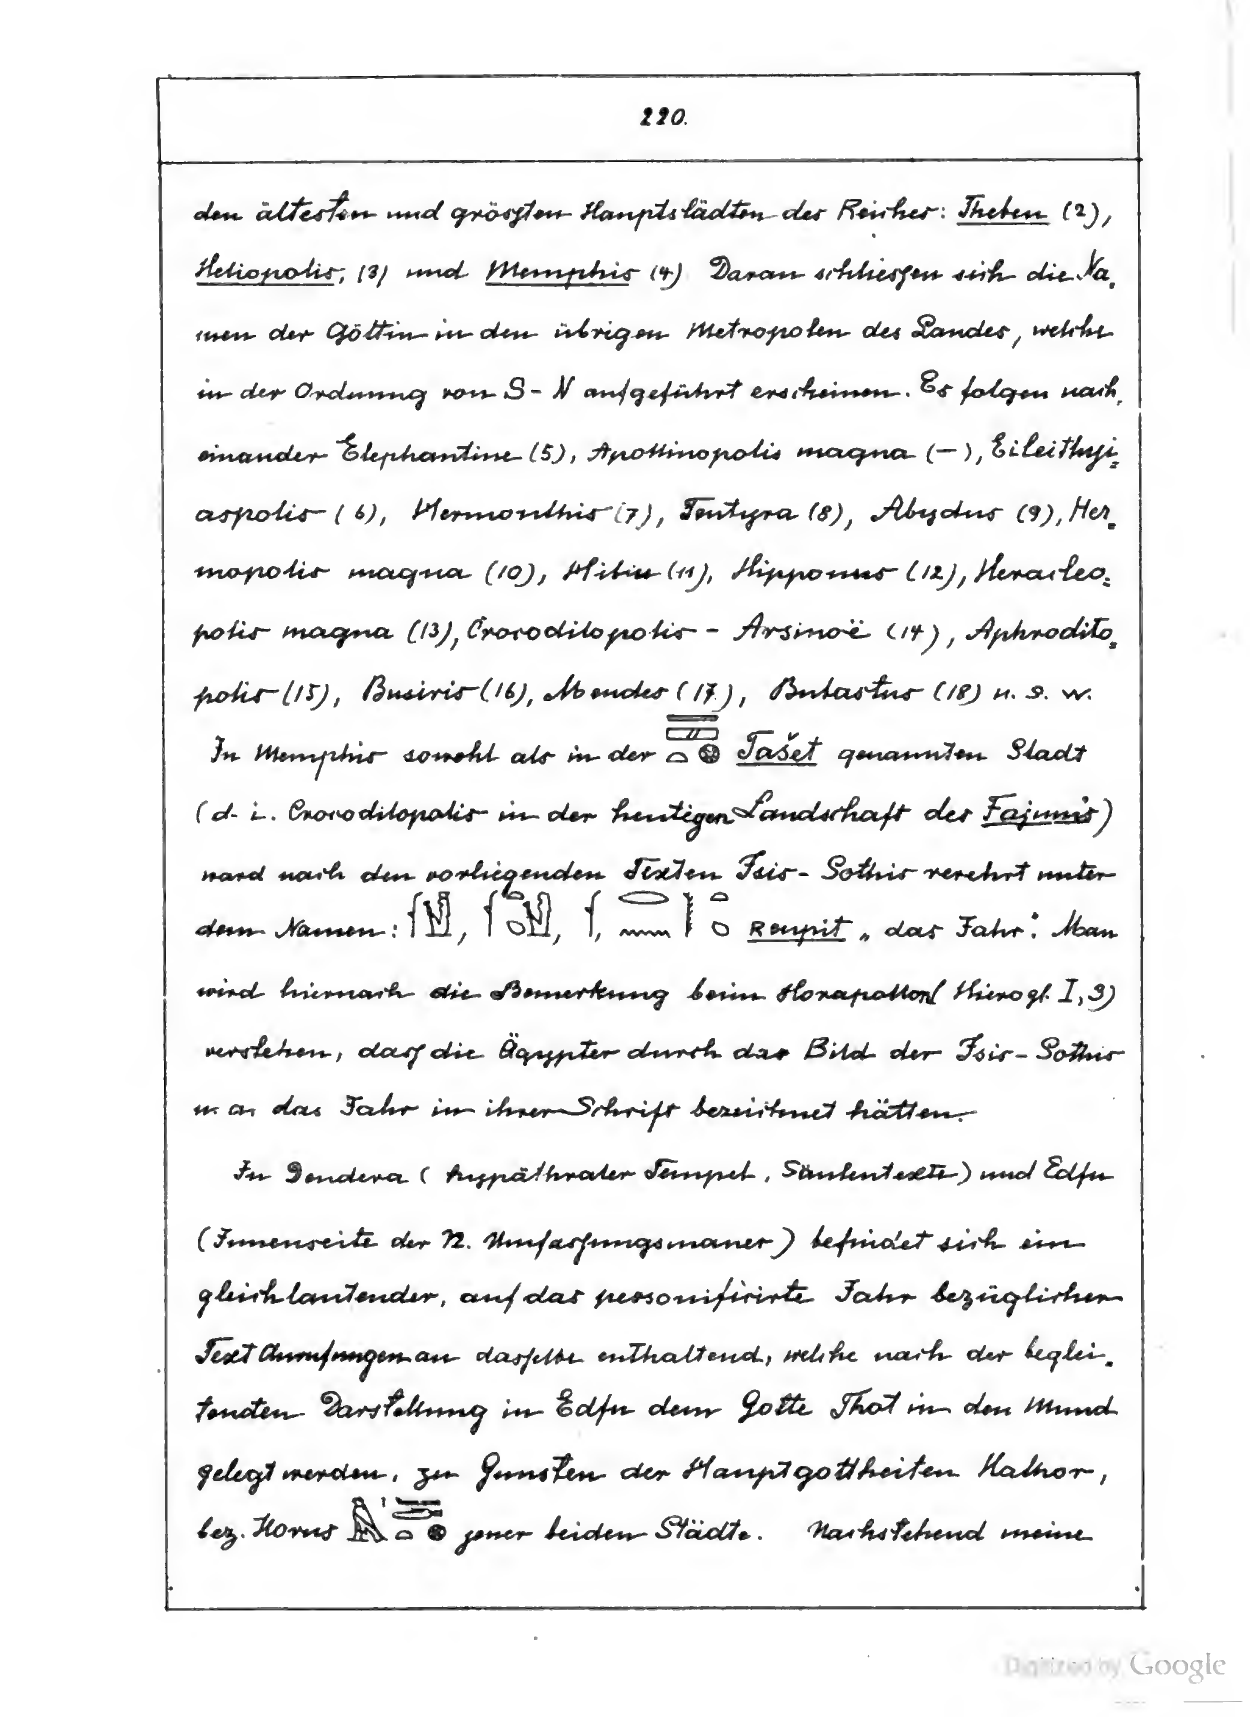 220.
den ältesten und grössten Hauptstädten des Reiches: Theben (2),
Heliopolis, (3) und Memphis (4) Daran schliessen sich die Na-
men der Göttin in den übrigen Metropolen des Landes, welche
in der Ordnung von S-N aufgeführt erscheinen. Es folgen nach
einander Elephantine (5), Apollinopolis magna (-), Eileithyi-
aspolis (6), Hermonthis (7), Tentyra (8), Abydus (9), Her-
mopolis magna (10), Hibiu (11), Hipponus (12), Heracleo-
polis magna (13), Crocodilopolis - Arsinoë (14), Aphrodito-
polis (15), Busiris (16), Mendes (17), Bubastus (18) u. s. w.
In Memphis sowohl als in der Tašet genannten Stadt
(d. i. Crocodilopolis in der heutigen Landschaft des Fajum's)
ward nach den vorliegenden Texten Isis-Sothis verehrt unter
dem Namen: , , , Renpit „das Jahr". Man
wird hiernach die Bemerkung beim Horapollon (Hierogl. I, 3)
verstehen, dass die Ägypter durch das Bild der Isis-Sothis
u. a. das Jahr in ihrer Schrift bezeichnet hätten.
In Dendera (hypäthraler Tempel, Säulentexte) und Edfu
(Innenseite der N. Umfassungsmauer) befindet sich ein
gleichlautender, auf das personificirte Jahr bezüglicher
Text Anrufungen an dasselbe enthaltend, welche nach der beglei-
tenden Darstellung in Edfu dem Gotte Thot in den Mund
gelegt werden, zu Gunsten der Hauptgottheiten Hathor,
bez. Horus jener beiden Städte. Nachstehend meine
Digitized by Google